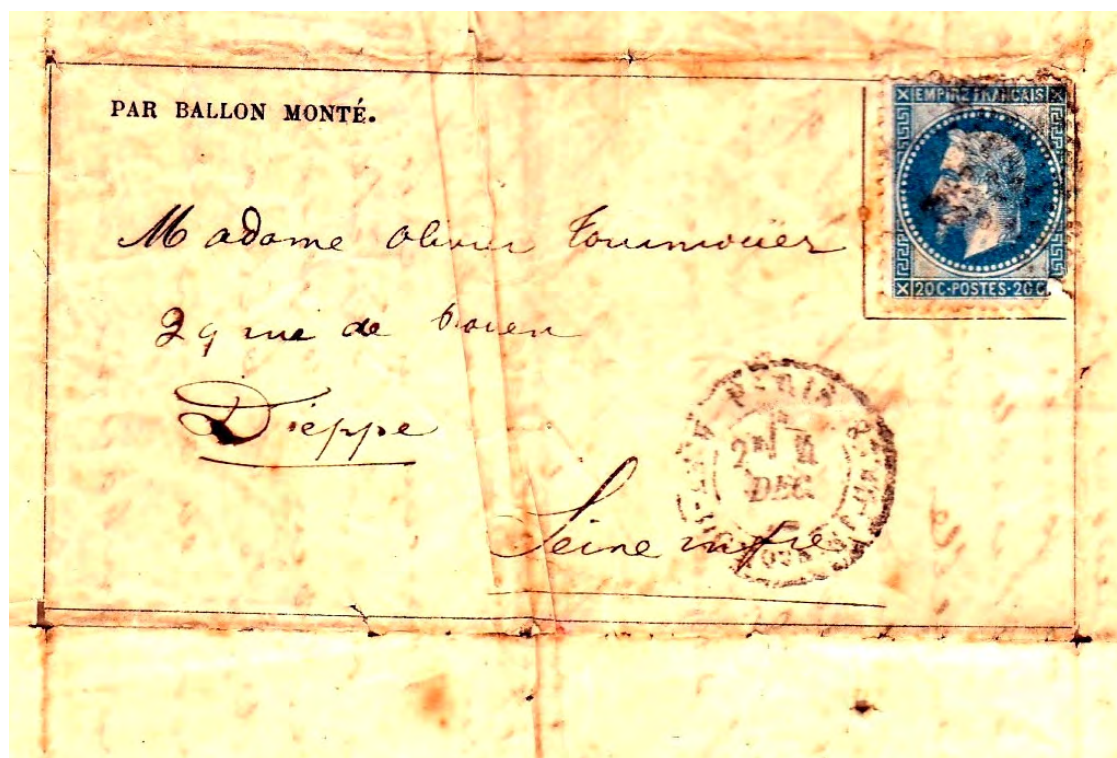 PAR BALLON MONTÉ.
EMPIRE FRANÇAIS
20C·POSTES·20C.
Madame Olivier
29 rue de
Dieppe
PARIS
2E
DEC.
Seine infre